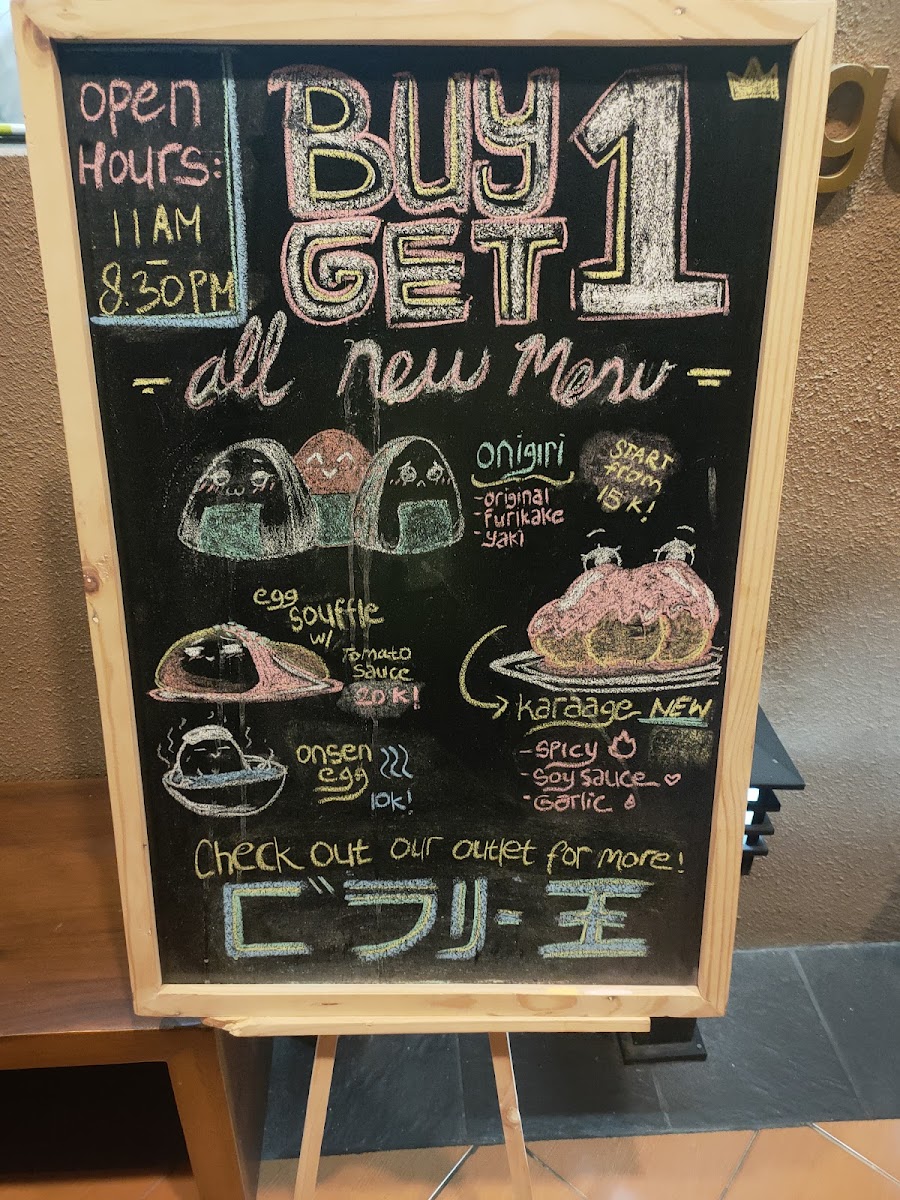 Open
Hours:
11AM
-
8.30PM
BUY 1
GET
all new Menu
onigiri
- original
- furikake
- yaki
START
from
15K!
egg
souffle
w/
Tomato
sauce
20K!
karaage NEW
- spicy
- Soy sauce
- Garlic
onsen
egg
10K!
Check out our outlet for more!
ビラリー王
g